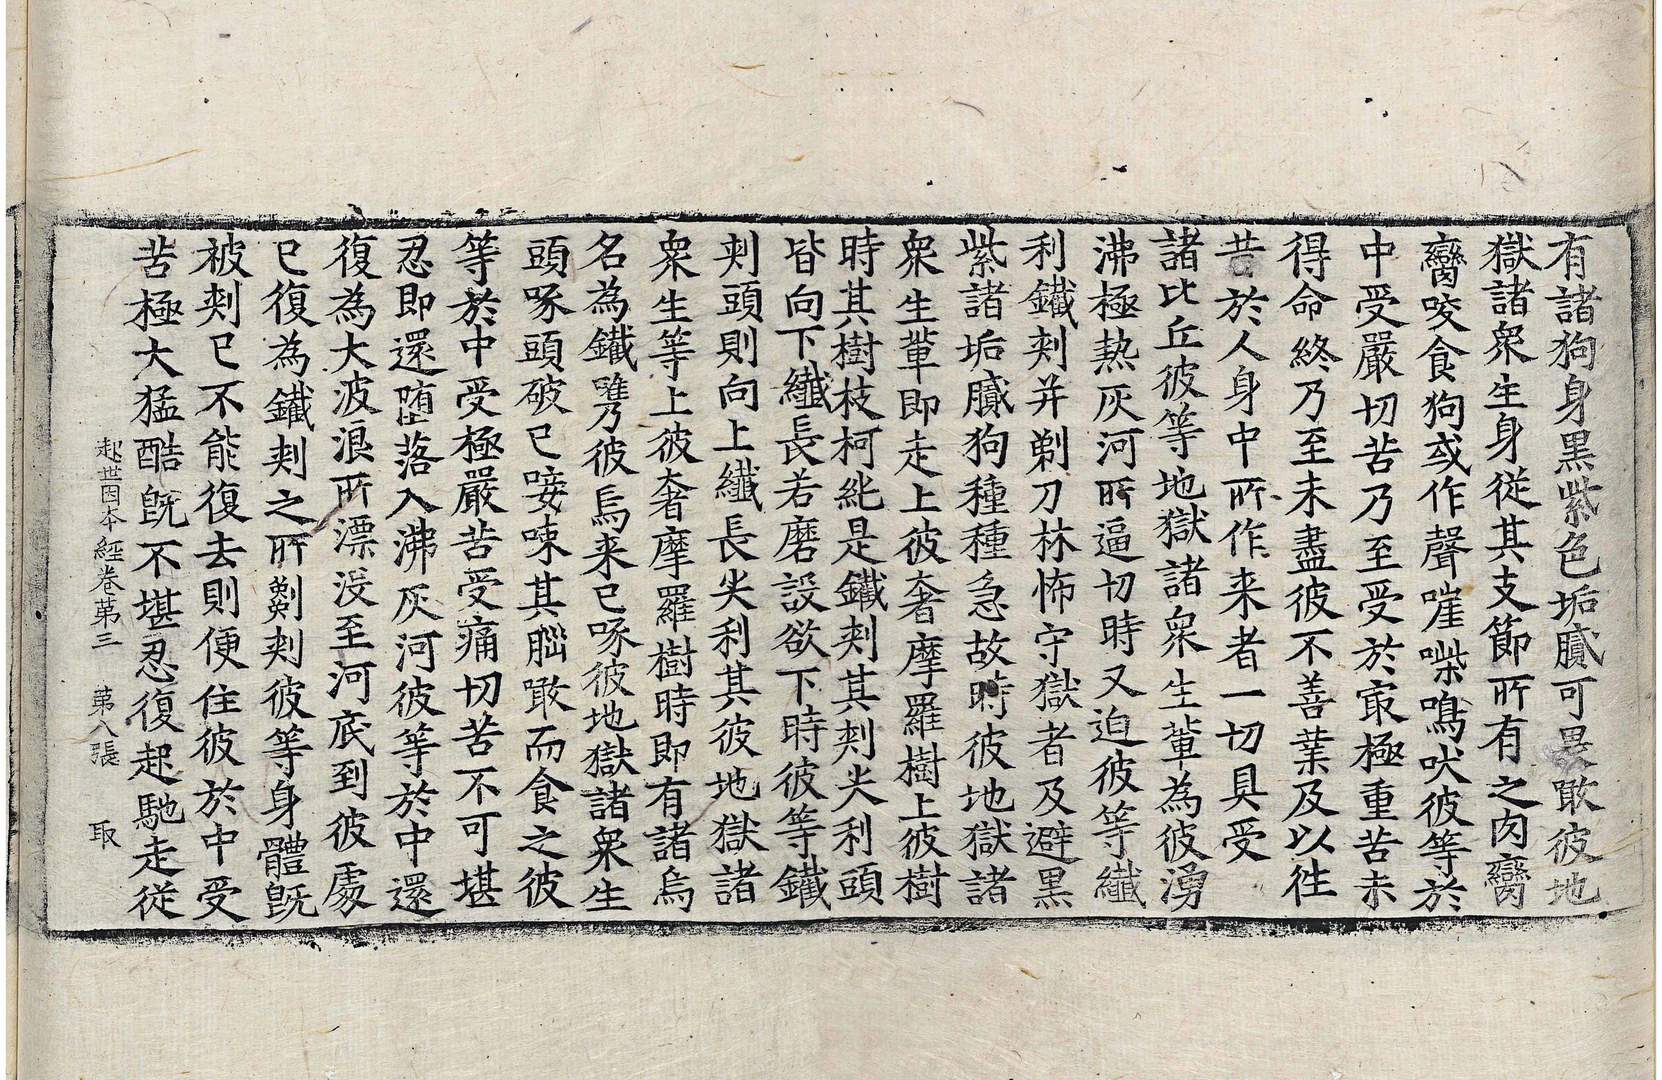 有諸狗身黑紫色垢膩可畏噉彼地
獄諸衆生身從其支節所有之肉臠
臠咬食狗或作聲嘊喍鳴吠彼等於
中受嚴切苦乃至受於㝡極重苦未
得命終乃至未盡彼不善業及以徃
昔於人身中所作来者一切具受
諸比丘彼等地獄諸衆生輩為彼湧
沸極熱灰河所逼切時又迫彼等纎
利鐵刾并剃刀林怖守獄者及避黒
紫諸垢膩狗種種急故時彼地獄諸
衆生輩即走上彼奢摩羅樹上彼樹
時其樹枝柯純是鐵刾其刾尖利頭
皆向下纎長若磨設欲下時彼等鐵
刾頭則向上纎長尖利其彼地獄諸
衆生等上彼奢摩羅樹時即有諸烏
名為鐵㭰彼烏来已啄彼地獄諸衆生
頭啄頭破已唼㖨其腦噉而食之彼
等於中受極嚴苦受痛切苦不可堪
忍即還墮落入沸灰河彼等於中還
復為大波浪所漂没至河底到彼處
已復為鐵刾之所劖刾彼等身體旣
被刾已不能復去則便住彼於中受
苦極大猛酷旣不堪忍復起馳走從
起世因本經卷第三　第八張　取